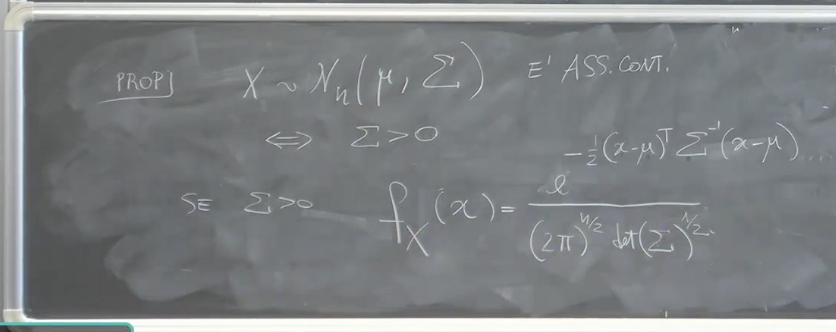 PROP] X ~ N_n(μ, Σ) E' ASS. CONT.
⟺ Σ>0
SE Σ>0 f_X(x) = e^{-1/2 (x-μ)^T Σ^{-1} (x-μ)...} / (2π)^{n/2} det(Σ)^{1/2}.